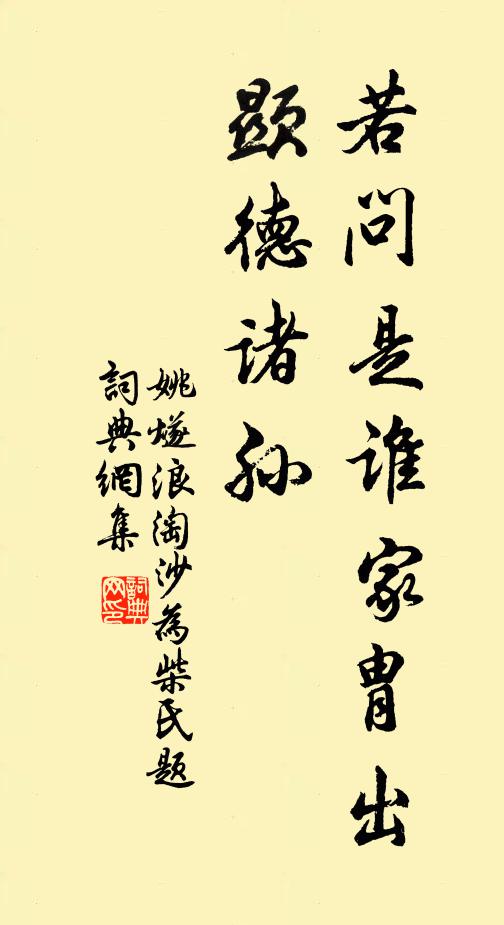 若问是谁家胄出
显德诸孙
姚燧浪淘沙为柴氏题
詞典網集
詞典网印